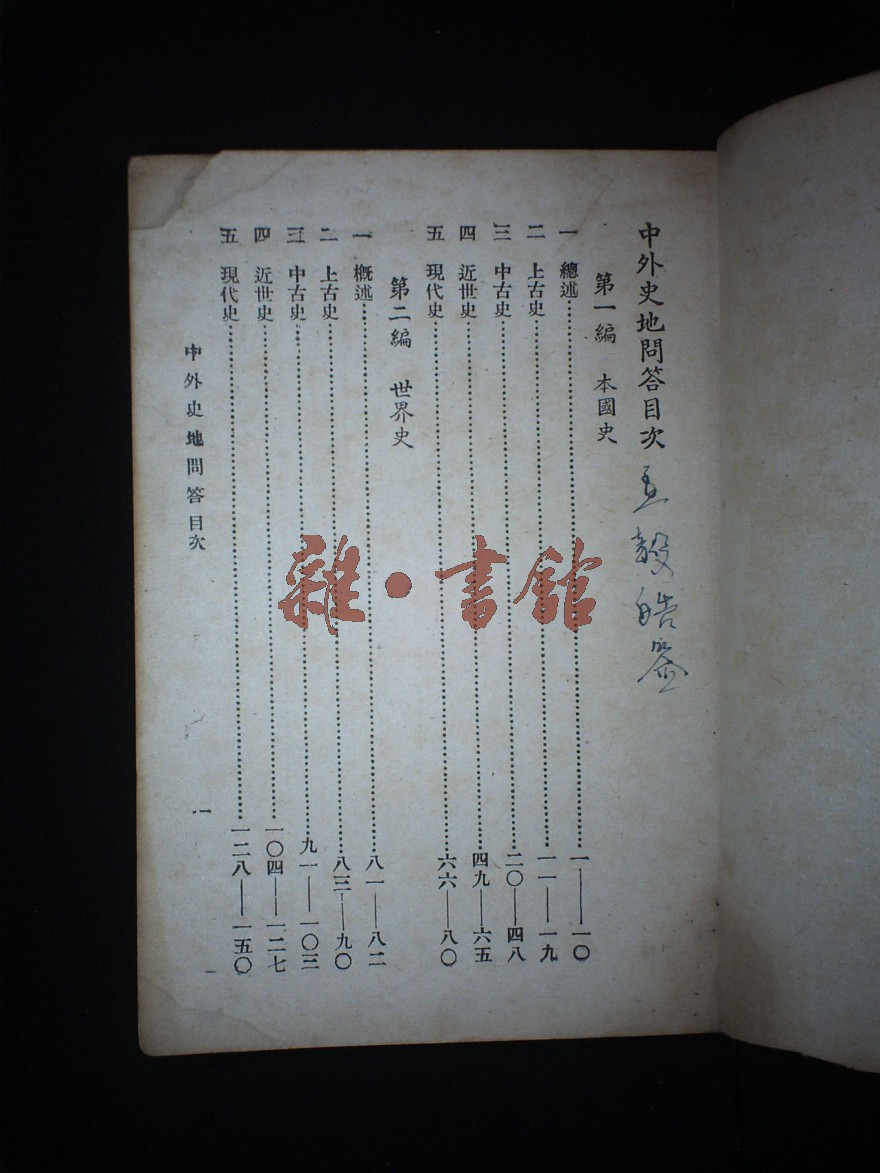 中外史地問答目次
第一編　本國史
一　總述……一——一〇
二　上古史……一一——一九
三　中古史……二〇——四八
四　近世史……四九——六五
五　現代史……六六——八〇
第二編　世界史
一　概述……八一——八二
二　上古史……八三——九〇
三　中古史……九一——一〇三
四　近世史……一〇四——一二七
五　現代史……一二八——一五〇
中外史地問答目次
一
雜·書館